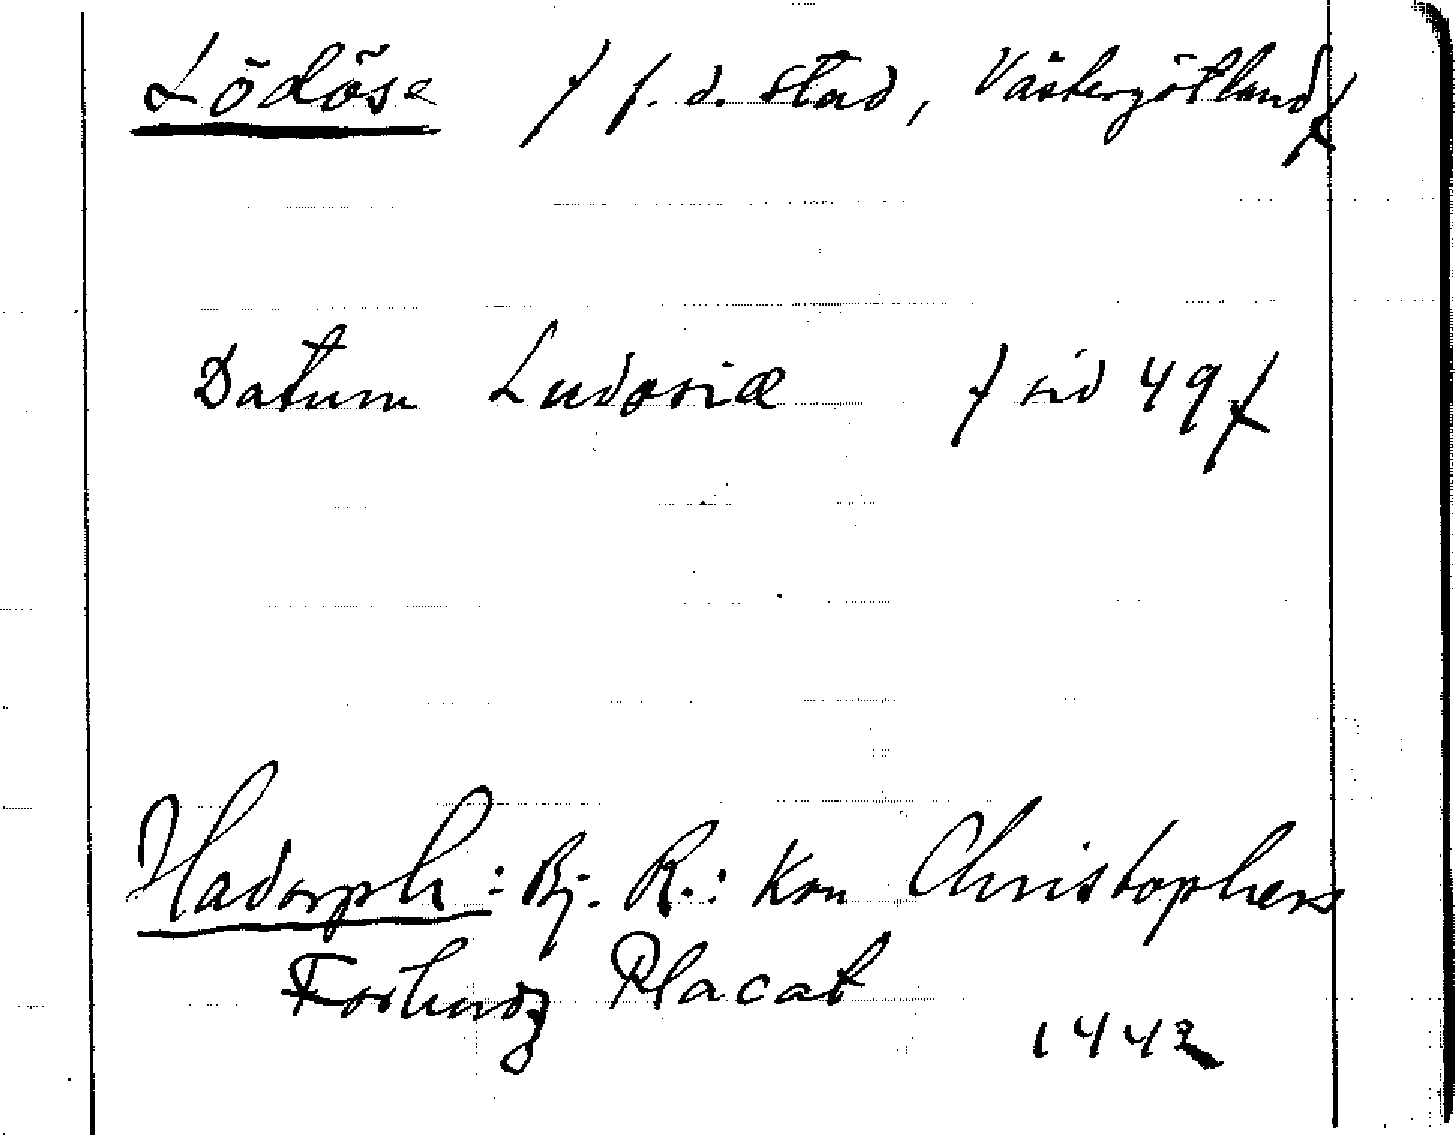 Lödöse / f. d. stad, Västergötland /
Datum Ludosiæ / sid 49 /
Hadorph: Bj. R.: Kon Christophers
Placat
1442